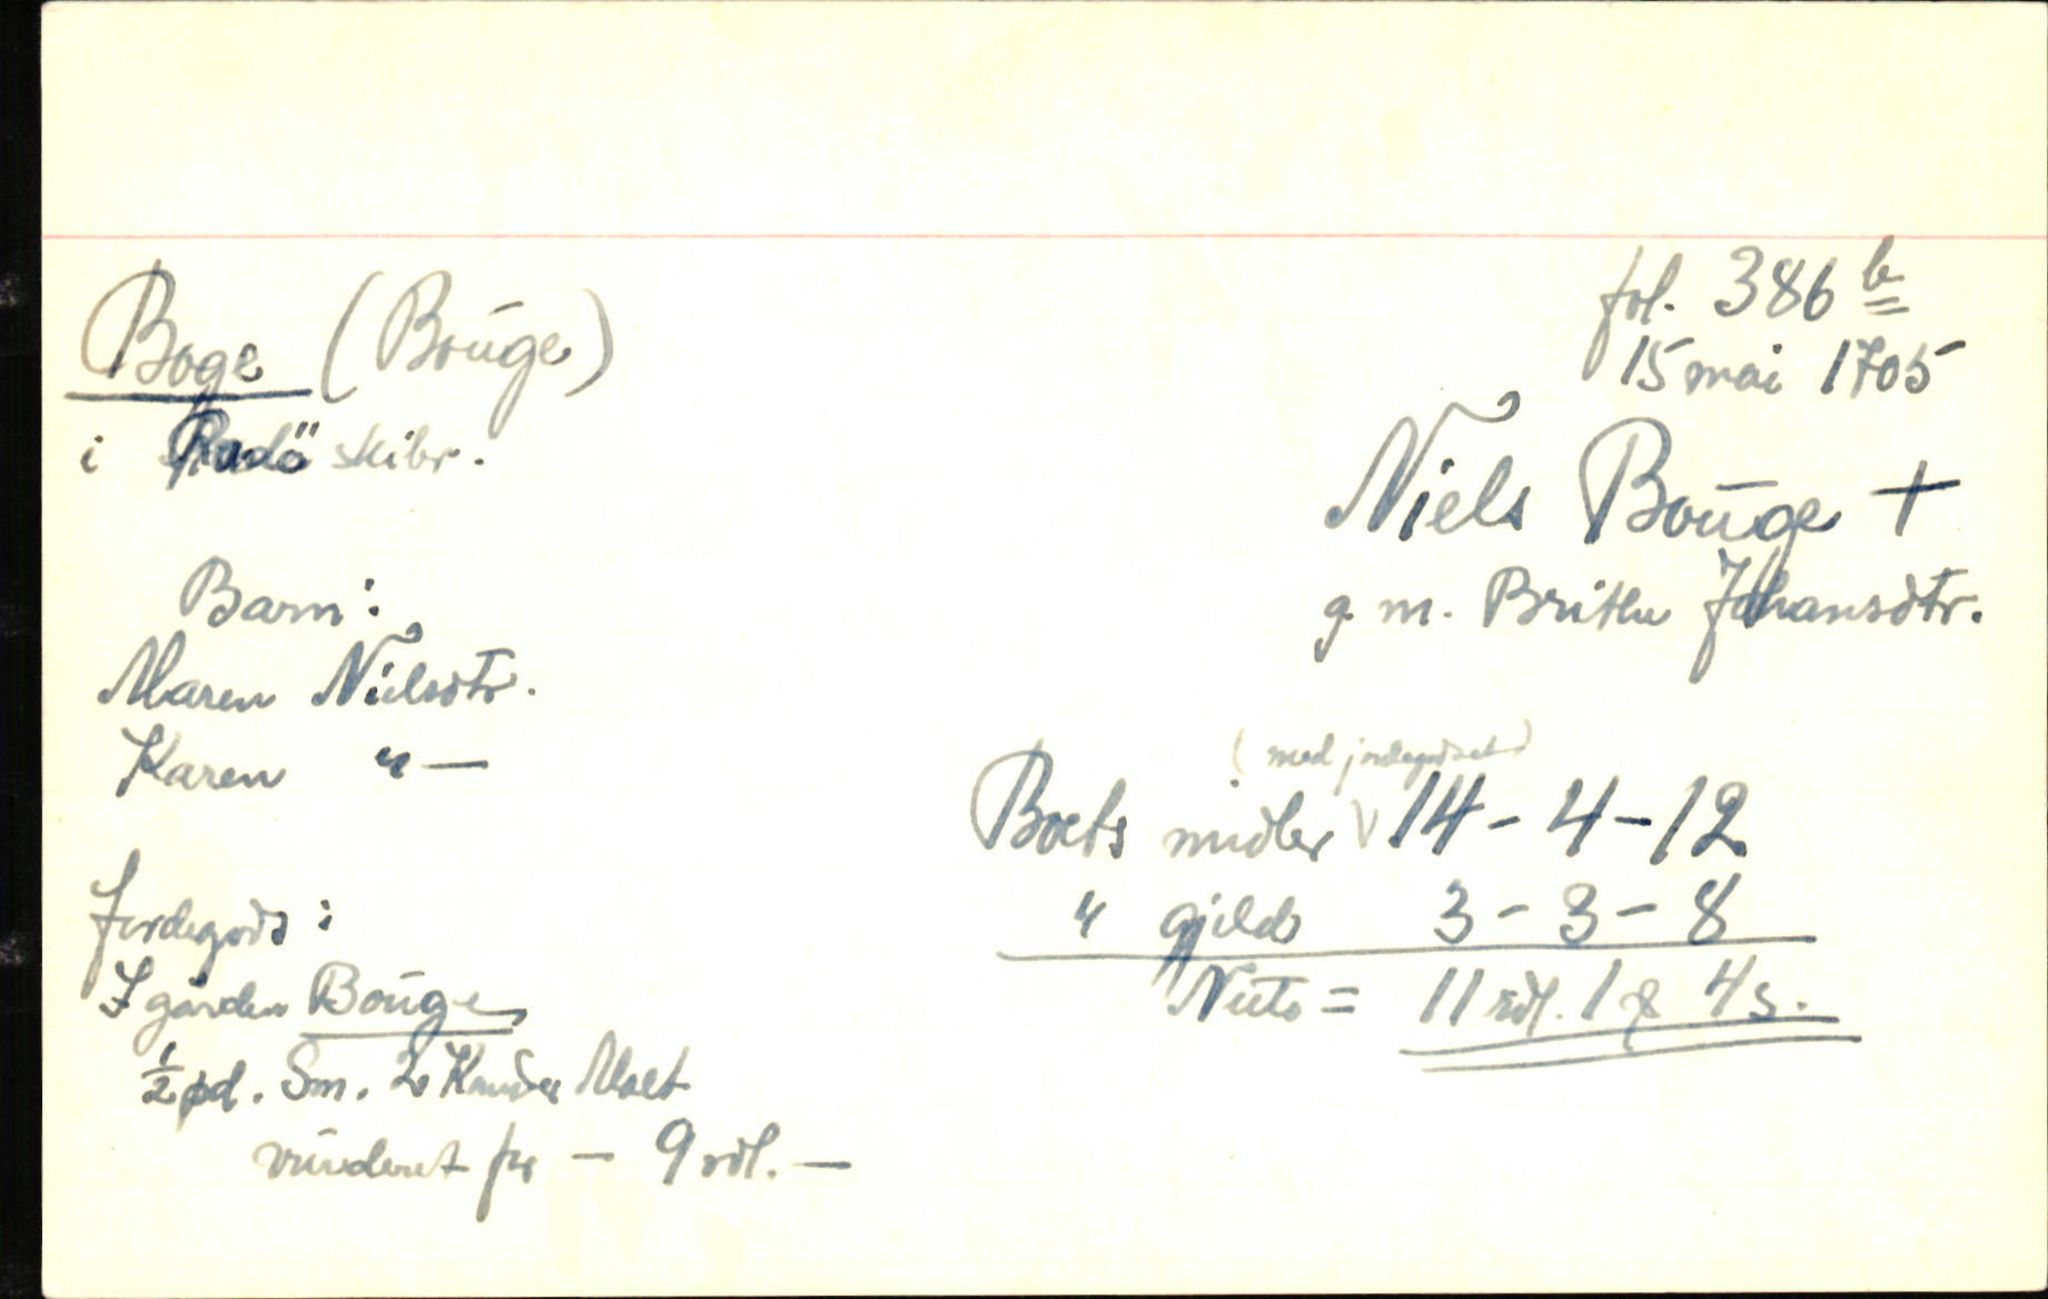 fol. 386 b
15 mai 1705
Boge (Bouge)
i Radö skibr.
Niels Bouge +
g. m. Brithe Johansdtr.
Barn:
Maren Nielsdtr.
Karen " —
(med jordegodset)
Boets midler 14 - 4 - 12
" gjeld 3 - 3 - 8
Netto = 11 rdl. 1 4 s.
Jordegods:
I gården Bouge
½ pd. Sm. 2 Kander Malt
vurderet for — 9 rdl. —